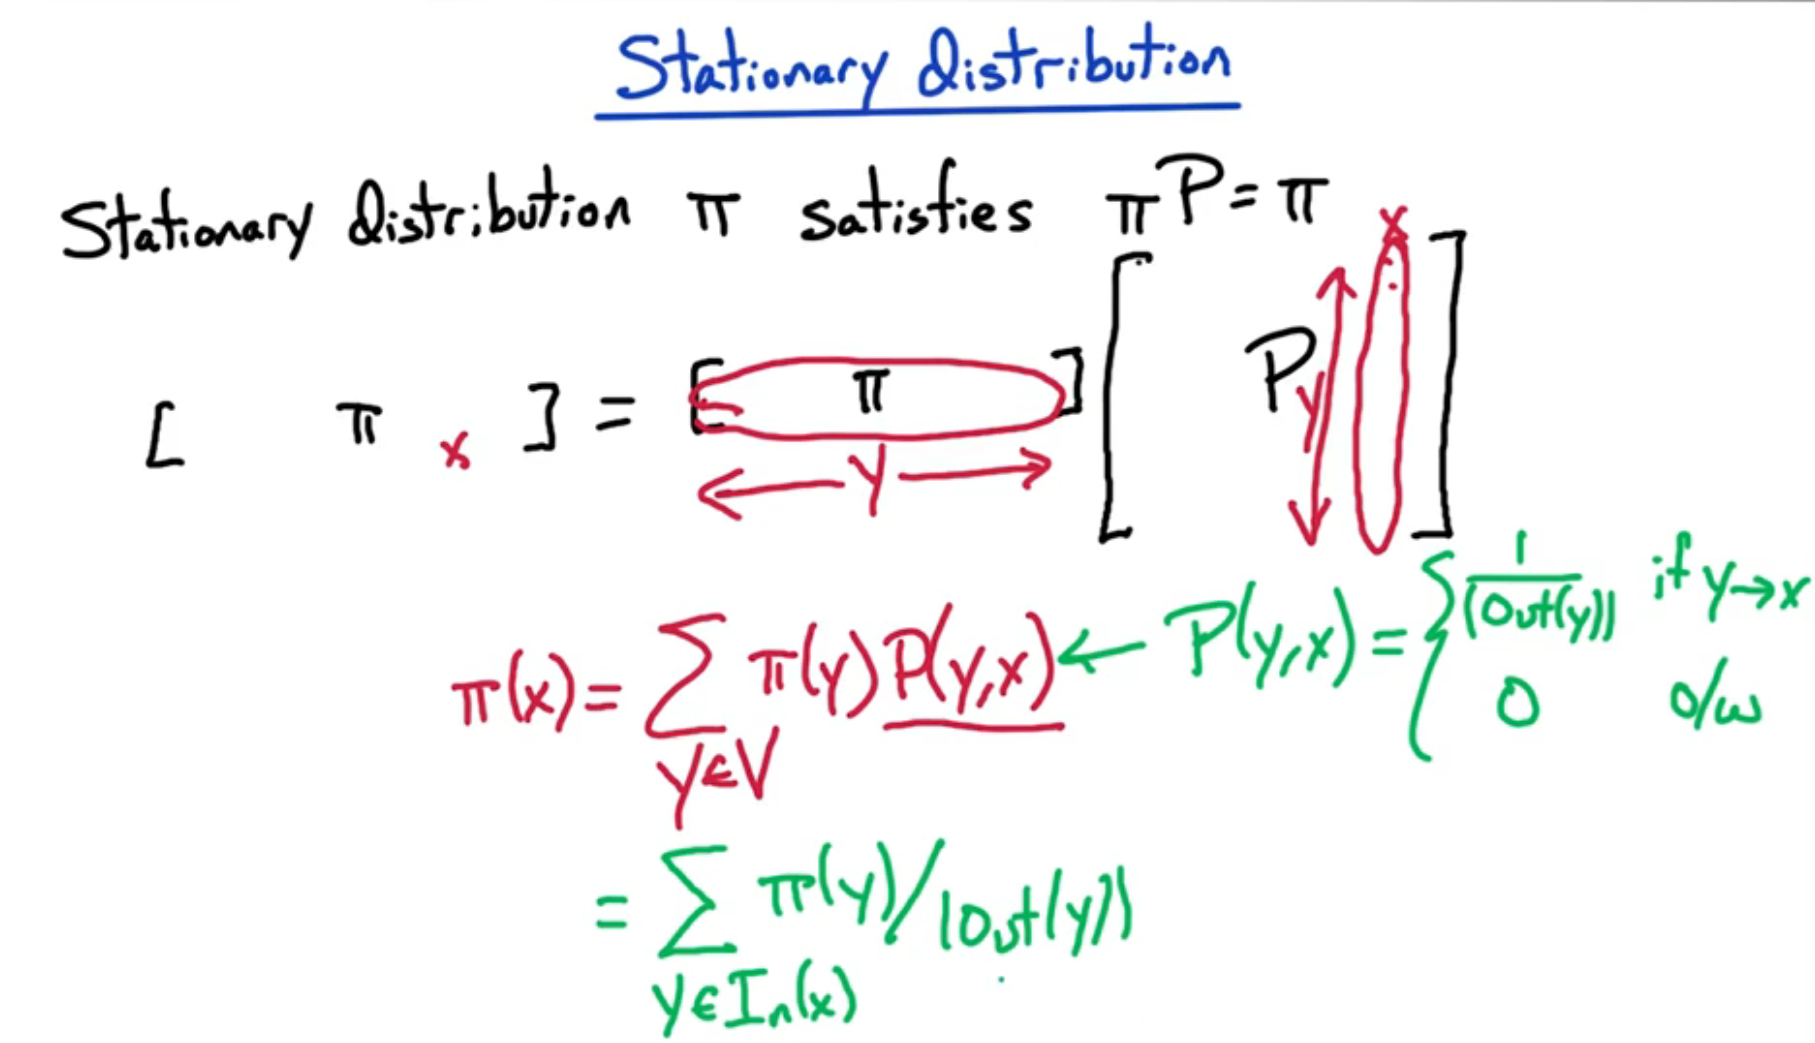 Stationary Distribution
Stationary distribution π satisfies πP = π
[ π x ] = [ π ] [ P x ]
y y
π(x) = ∑ π(y) P(y,x) ← P(y,x) = { 1/|Out(y)| if y→x
0 o/w
y∈V
= ∑ π(y)/|Out(y)|
y∈In(x)